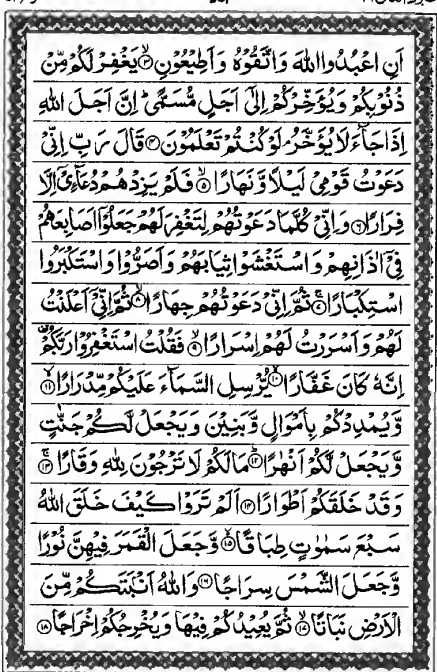 اَنِ اعْبُدُوا اللّٰهَ وَاتَّقُوْهُ وَاَطِيْعُوْنِ ۙ﴿۳﴾ يَغْفِرْ لَكُمْ مِّنْ
ذُنُوْبِكُمْ وَيُؤَخِّرْكُمْ اِلٰٓى اَجَلٍ مُّسَمًّى ؕ اِنَّ اَجَلَ اللّٰهِ
اِذَا جَآءَ لَا يُؤَخَّرُ ۘ لَوْ كُنْتُمْ تَعْلَمُوْنَ ﴿۴﴾ قَالَ رَبِّ اِنِّيْ
دَعَوْتُ قَوْمِيْ لَيْلًا وَّنَهَارًا ۙ﴿۵﴾ فَلَمْ يَزِدْهُمْ دُعَآءِيْٓ اِلَّا
فِرَارًا ﴿۶﴾ وَاِنِّيْ كُلَّمَا دَعَوْتُهُمْ لِتَغْفِرَ لَهُمْ جَعَلُوْٓا اَصَابِعَهُمْ
فِيْٓ اٰذَانِهِمْ وَاسْتَغْشَوْا ثِيَابَهُمْ وَاَصَرُّوْا وَاسْتَكْبَرُوا
اسْتِكْبَارًا ۚ﴿۷﴾ ثُمَّ اِنِّيْ دَعَوْتُهُمْ جِهَارًا ۙ﴿۸﴾ ثُمَّ اِنِّيْٓ اَعْلَنْتُ
لَهُمْ وَاَسْرَرْتُ لَهُمْ اِسْرَارًا ۙ﴿۹﴾ فَقُلْتُ اسْتَغْفِرُوْا رَبَّكُمْ ؕ
اِنَّهٗ كَانَ غَفَّارًا ۙ﴿۱۰﴾ يُّرْسِلِ السَّمَآءَ عَلَيْكُمْ مِّدْرَارًا ۙ﴿۱۱﴾
وَّيُمْدِدْكُمْ بِاَمْوَالٍ وَّبَنِيْنَ وَيَجْعَلْ لَّكُمْ جَنّٰتٍ
وَّيَجْعَلْ لَّكُمْ اَنْهٰرًا ؕ﴿۱۲﴾ مَالَكُمْ لَا تَرْجُوْنَ لِلّٰهِ وَقَارًا ۚ﴿۱۳﴾
وَقَدْ خَلَقَكُمْ اَطْوَارًا ﴿۱۴﴾ اَلَمْ تَرَوْا كَيْفَ خَلَقَ اللّٰهُ
سَبْعَ سَمٰوٰتٍ طِبَاقًا ۙ﴿۱۵﴾ وَّجَعَلَ الْقَمَرَ فِيْهِنَّ نُوْرًا
وَّجَعَلَ الشَّمْسَ سِرَاجًا ﴿۱۶﴾ وَاللّٰهُ اَنْۢبَتَكُمْ مِّنَ
الْاَرْضِ نَبَاتًا ۙ﴿۱۷﴾ ثُمَّ يُعِيْدُكُمْ فِيْهَا وَيُخْرِجُكُمْ اِخْرَاجًا ﴿۱۸﴾